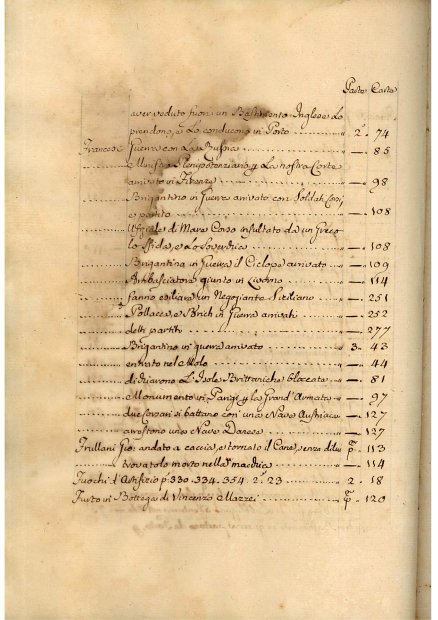 Parte Carte
aver veduto fuori un Bastimento Inglese Lo
prendono, e Lo conducono in Porto 2ª 74
Francese Guerra con La Russia " — 85
Ministro Plenipotenziario La nostra Corte
arrivato in Firenze " — 98
Brigantino in Guerra arrivato con Soldati Corsi
e partito " — 108
Ufiziale di Mare Corso insultato da un Greco
lo sfida, e Lo " — 108
Brigantina in Guerra il Ciclope arrivato " — 109
Ambasciatore giunto in Livorno " — 114
fanno esiliare un Negoziante Siciliano " — 251
Pollacca, e Brich in Guerra arrivati " — 252
detti partiti " — 277
Brigantino in guerra arrivato " 3ª 43
entrato nel Molo " — 44
dichiarono L'Isole Brittaniche bloccate " — 81
Monumento in Parigi p. la Grand'Armata " — 97
due Corsari si battano con una Nave Austriaca " — 127
arrestono una Nave Danese " — 127
Frullani Gio: andato a caccia, e tornato il Cane, senza di lui pª 113
trovatolo morto nella macchia " — 114
Fuochi d'Artifizio p. 330. 334. 354. 2ª 23 " 2 - 18
Furto in Bottega di Vincenzo Mazzei " pª 120